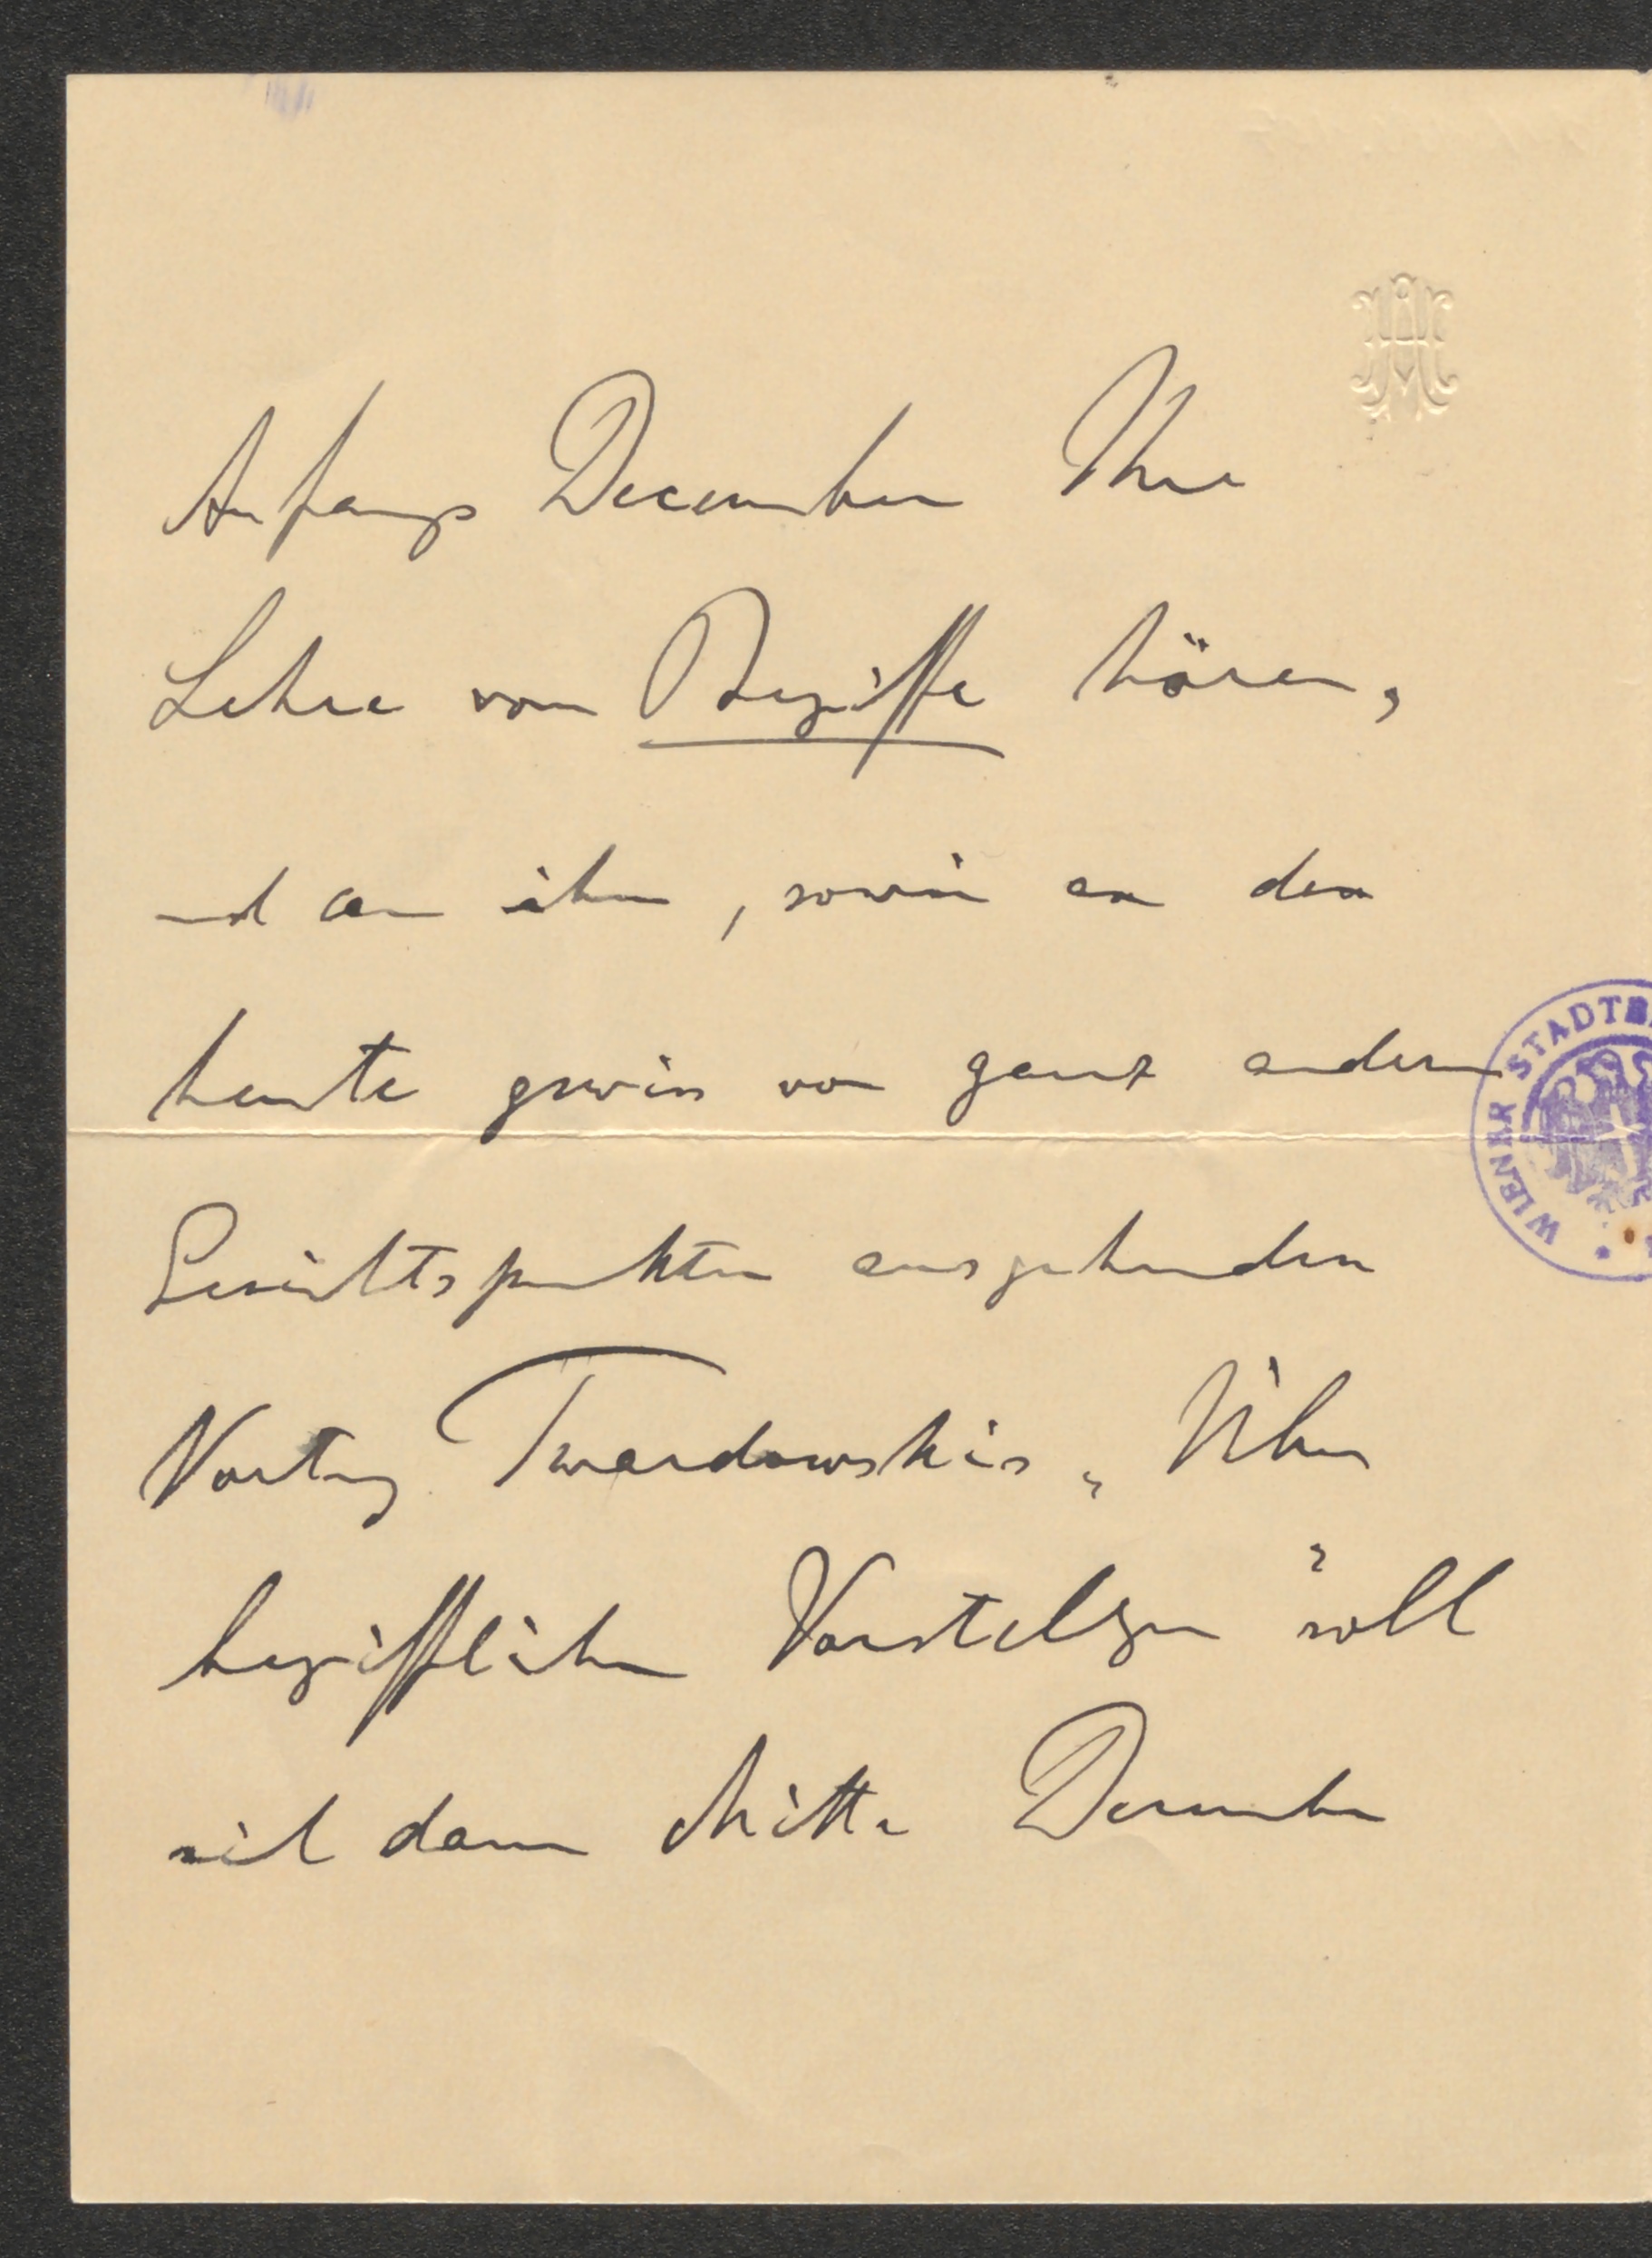 Anfangs December Ihre
Lehre vom Begriffe hören,
und an ihn, sowie an den
heute gewiss von ganz andern
Gesichtspunkten ausgehenden
Vortrag Twardowskis „Über
begriffliche Vorstellungen" soll
sich dann Mitte December
WIENER STADTB